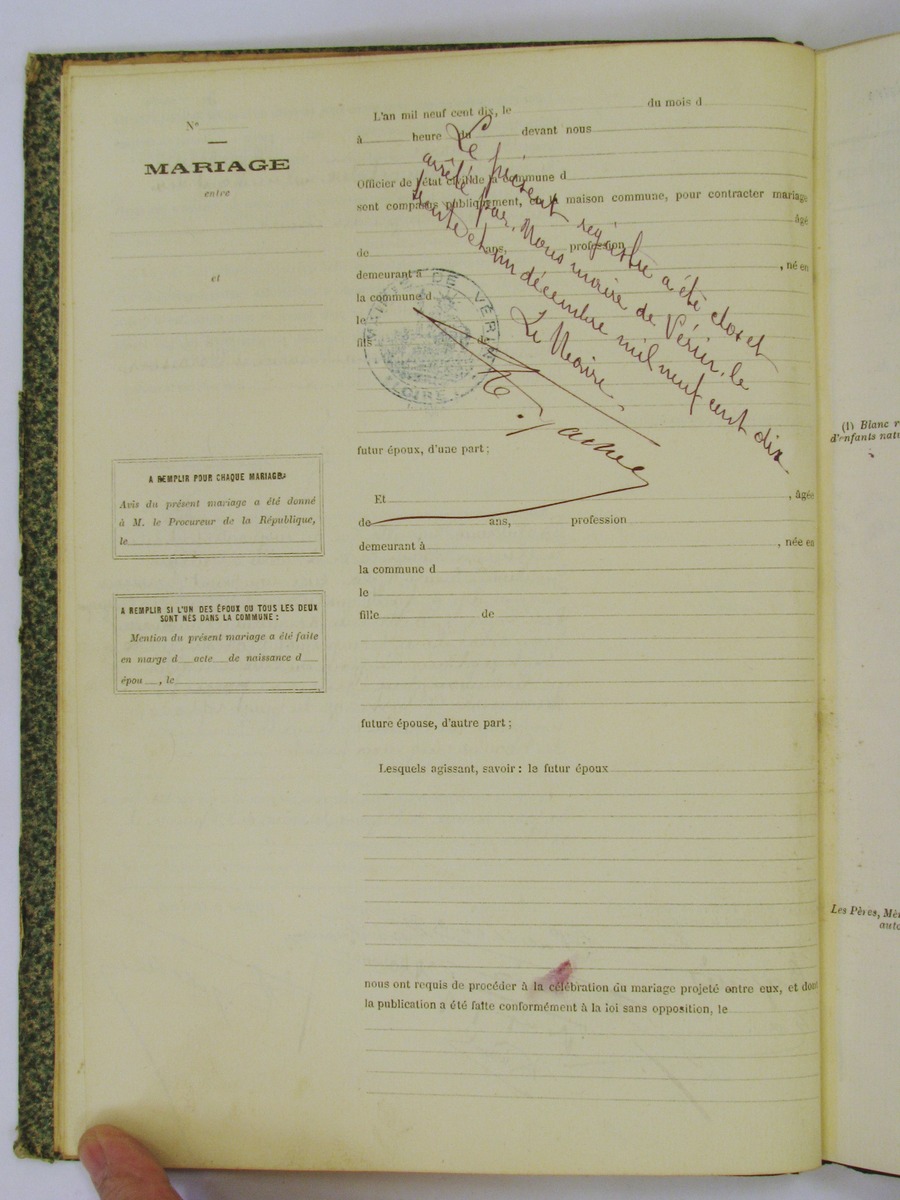 N°
MARIAGE
entre
et
A REMPLIR POUR CHAQUE MARIAGE
Avis du présent mariage a été donné
à M. le Procureur de la République,
le
A REMPLIR SI L'UN DES ÉPOUX OU TOUS LES DEUX
SONT NÉS DANS LA COMMUNE :
Mention du présent mariage a été faite
en marge d acte de naissance d
épou , le
L'an mil neuf cent dix, le du mois d
à heure du devant nous
Officier de l'état civil de la commune d
sont comparus publiquement, en la maison commune, pour contracter mariage
âgé
de ans, profession
demeurant à , né en
la commune d
le
fils de
Le présent registre a été clos et
arrêté par Nous maire de Vérin, le
trente et un décembre mil neuf cent dix
Le Maire
MAIRIE DE VÉRIN
LOIRE
futur époux, d'une part ;
Et , âgée
de ans, profession
demeurant à , née en
la commune d
le
fille de
future épouse, d'autre part ;
Lesquels agissant, savoir : le futur époux
nous ont requis de procéder à la célébration du mariage projeté entre eux, et dont
la publication a été faite conformément à la loi sans opposition, le
(1) Blanc
d'enfants
Les Pères,